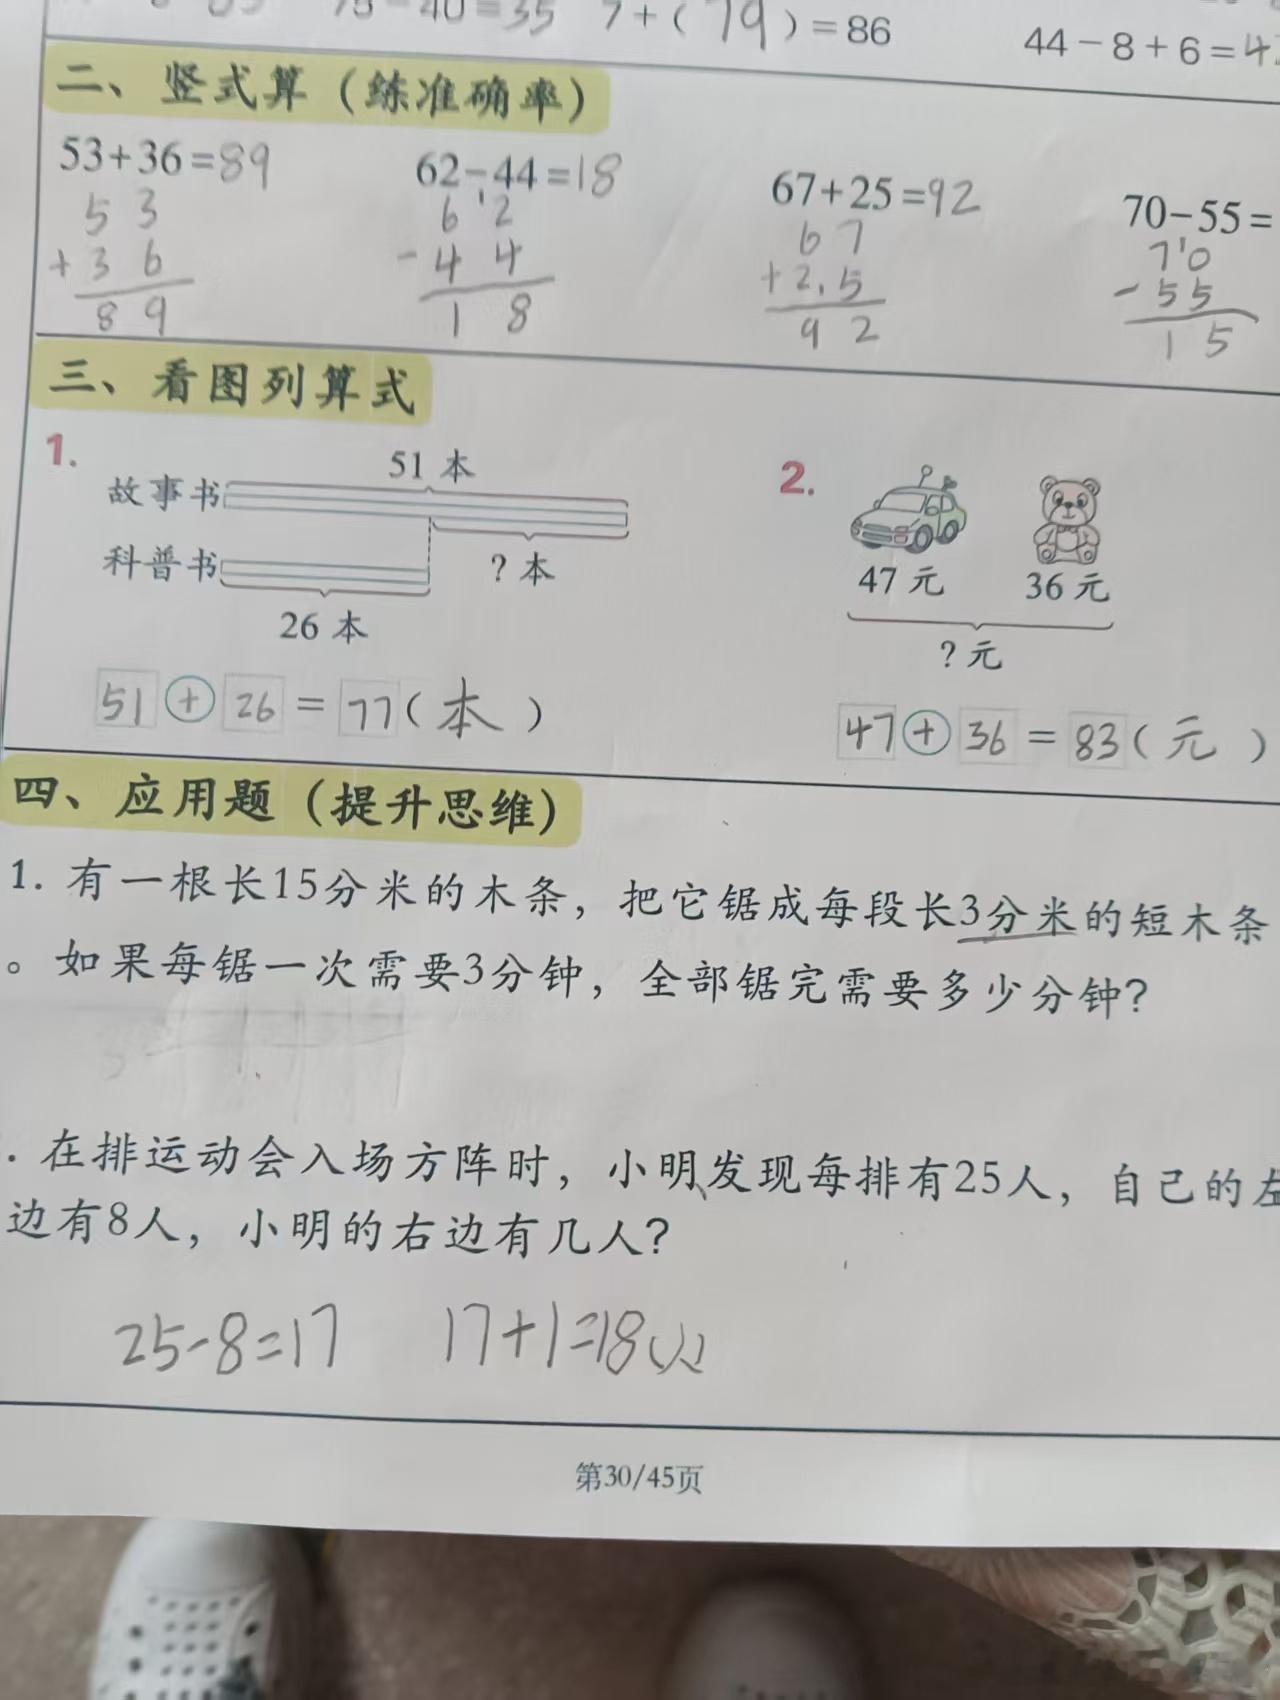 75-40=35 7+(79)=86 44-8+6=4
二、竖式算（练准确率）
53+36=89 62-44=18 67+25=92 70-55=
53 62 67 70
+36 -44 +25 -55
89 18 92 15
三、看图列算式
1. 2.
51本
故事书
科普书 ?本
26本
47元 36元
?元
51+26=77(本) 47+36=83(元)
四、应用题（提升思维）
1. 有一根长15分米的木条，把它锯成每段长3分米的短木条
。如果每锯一次需要3分钟，全部锯完需要多少分钟?
. 在排运动会入场方阵时，小明、发现每排有25人，自己的左
边有8人，小明的右边有几人?
25-8=17 17+1=18(人)
第30/45页